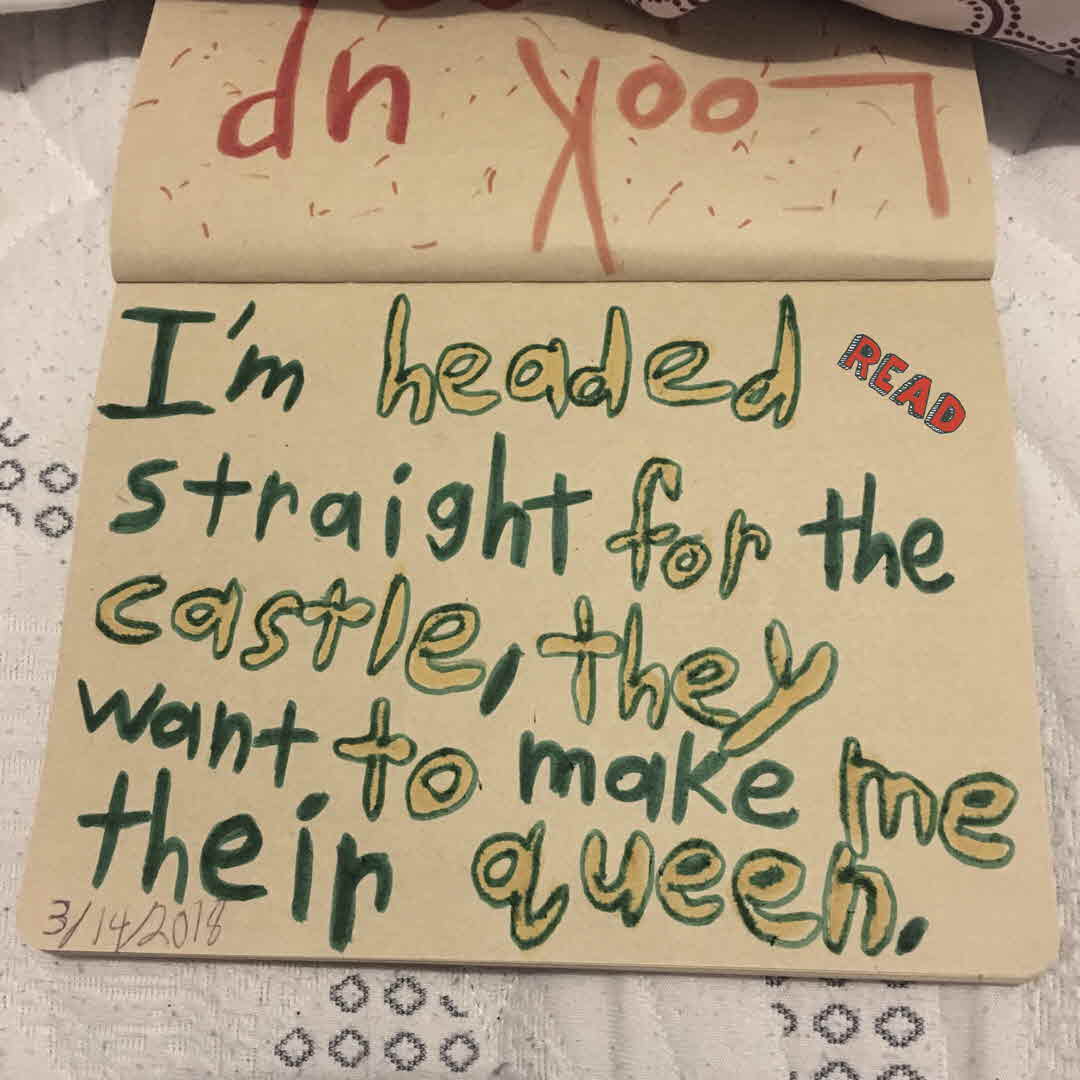 Look up
I'm headed
READ
straight for the
castle, they
want to make me
their queen.
3/14/2018